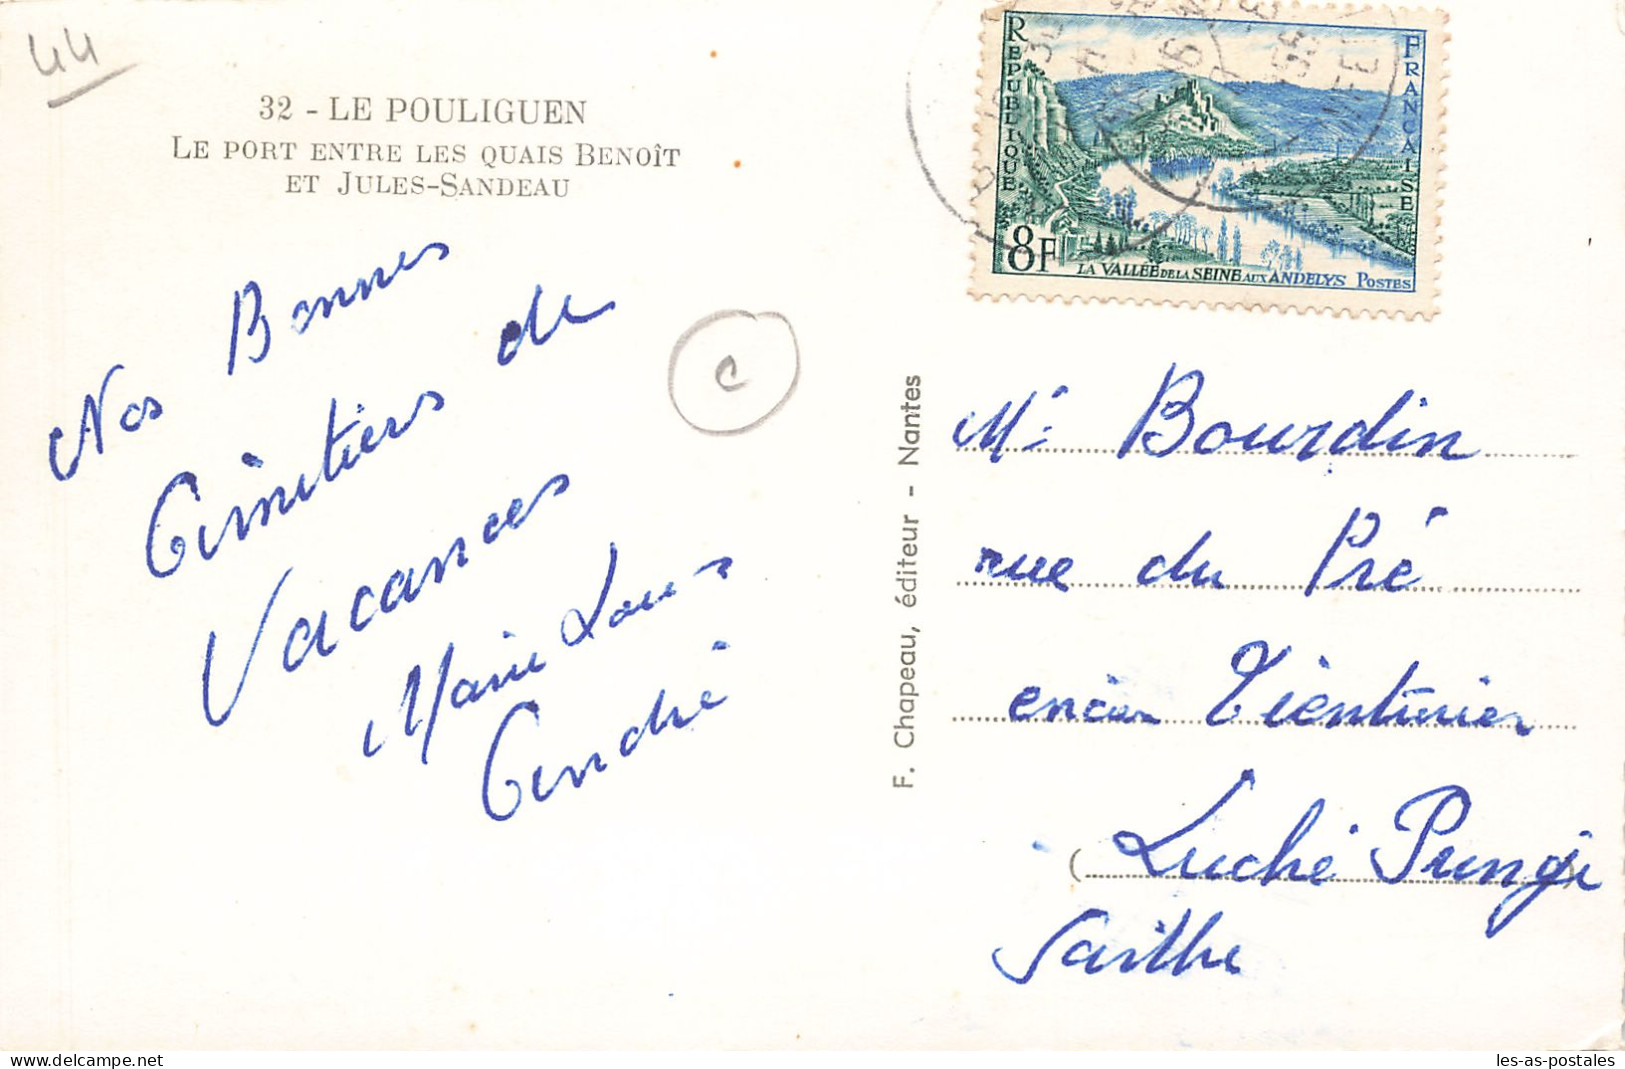 44
32 - LE POULIGUEN
LE PORT ENTRE LES QUAIS BENOÎT
ET JULES-SANDEAU
Nos Bonnes
Amitiers de
Vacances
Marie Louis
André
C
F. Chapeau, éditeur - Nantes
REPUBLIQUE
FRANCAISE
8F
LA VALLÉE DE LA SEINE AUX ANDELYS POSTES
Mr Bourdin
rue du Pré
Luché Pringé
Sarthe
delcampe.net
les-as-postales